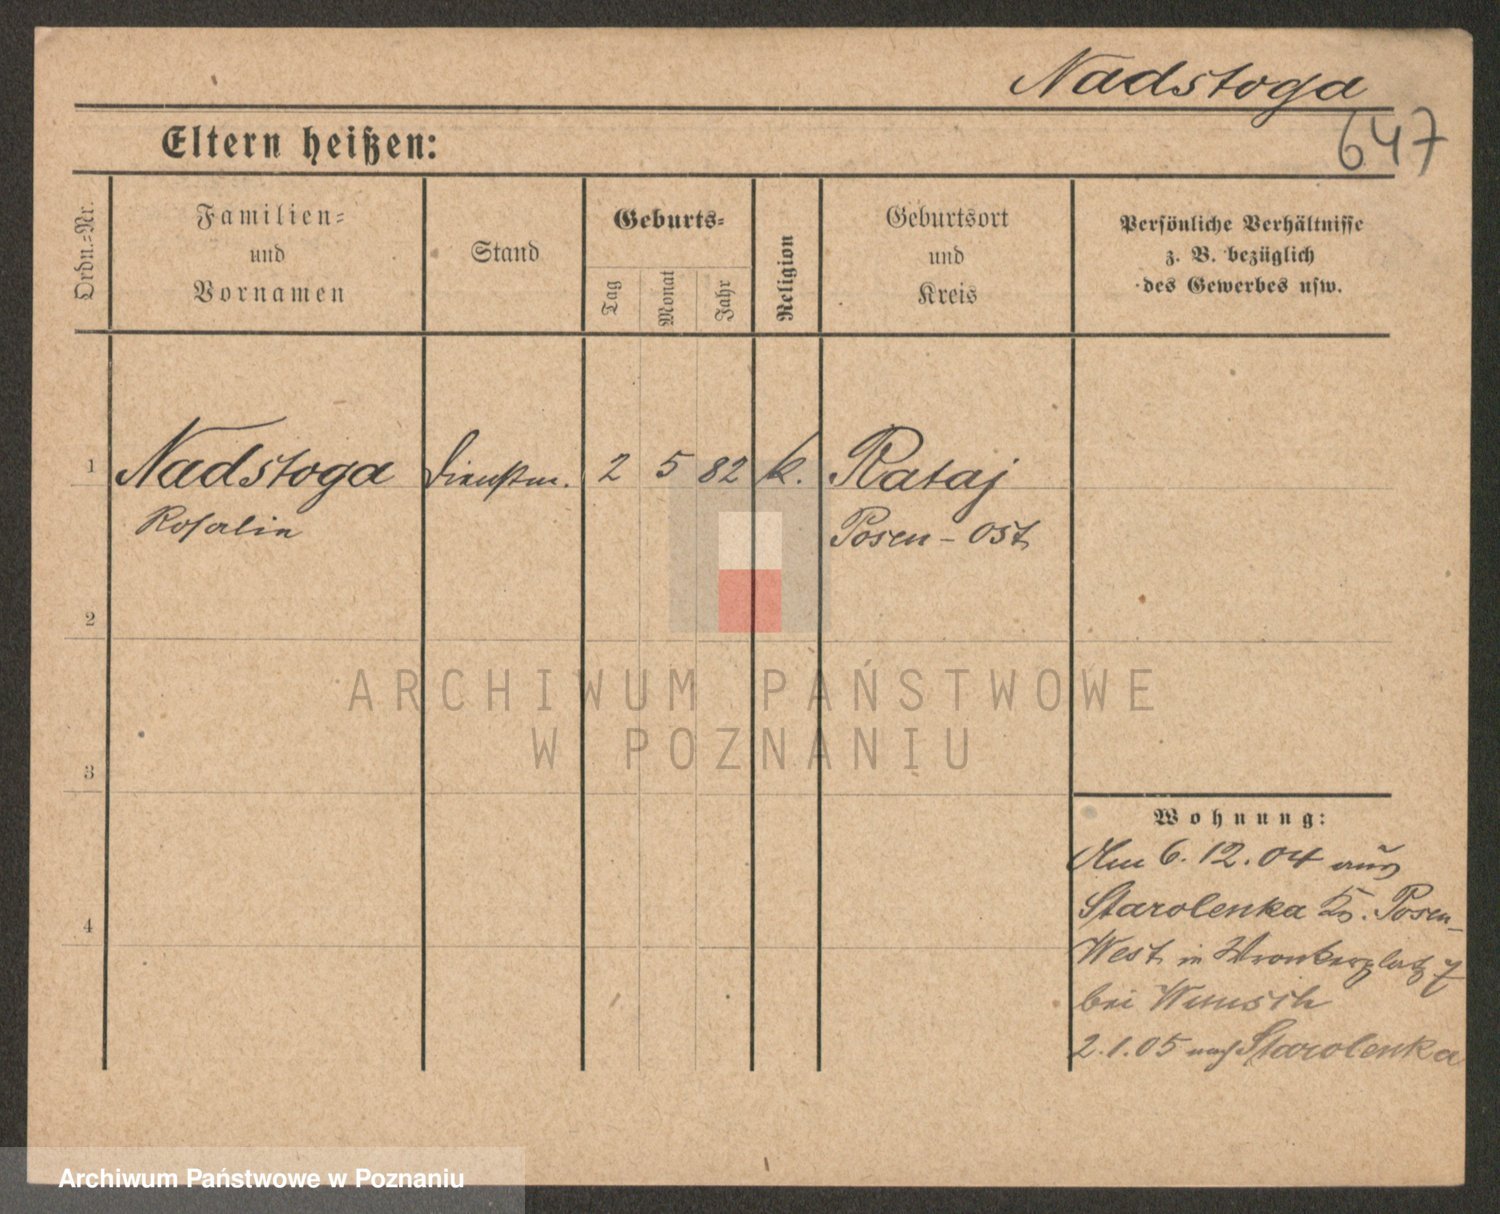 Nadstoga
647
Eltern heißen:
Ordn.=Nr.
Familien=
und
Vornamen
Stand
Geburts=
Tag
Monat
Jahr
Religion
Geburtsort
und
Kreis
Persönliche Verhältnisse
z. B. bezüglich
des Gewerbes usw.
1 Nadstoga Dienstm. 2 5 82 k. Rataj
Rosalie Posen - Ost
2
ARCHIWUM PAŃSTWOWE
W POZNANIU
3
Wohnung:
Am 6. 12. 04 aus
Starolenka Kr. Posen-
4
West in Wronkerplatz 7
bei Wunsch
2.1.05 nach Starolenka
Archiwum Państwowe w Poznaniu